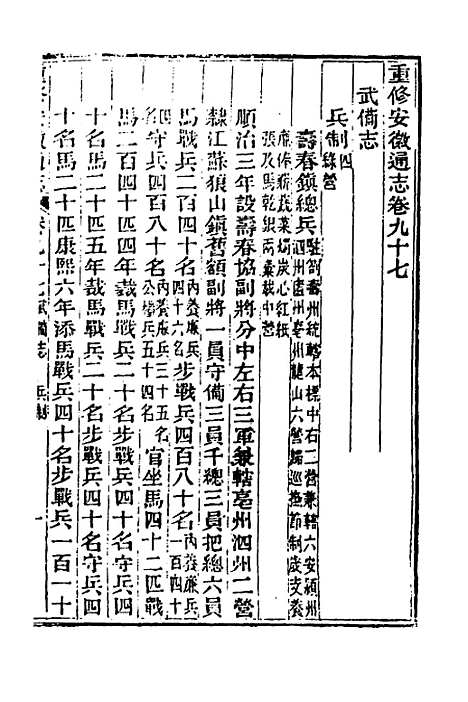 重修安徽通志卷九十七
武備志
兵制四 綠營
壽春鎮總兵 駐劄壽州統轄本標中右二營兼轄六安潁州
泗州廬州亳州龍山六營歸巡撫節制歲支養
廉俸薪蔬菜燭炭心紅紙
張及馬乾銀兩彙載中營
順治三年設壽春協副將分中左右三軍兼轄亳州泗州二營
隸江蘇狼山鎮舊額副將一員守備三員千總三員把總六員
馬戰兵二百四十八名 內養廉兵
四十六名 步戰兵四百八十名 內養廉兵
一百四十
名 守兵四百八十名 內養廉兵三十五名
公糧兵五十四名 官坐馬四十二匹戰
馬二百四十八匹四年裁馬戰兵二十名步戰兵四十名守兵四
十名馬二十匹五年裁馬戰兵二十名步戰兵四十名守兵四
十名馬二十匹康熙六年添馬戰兵四十名步戰兵一百一十
卷九十七 武備志 兵制 一